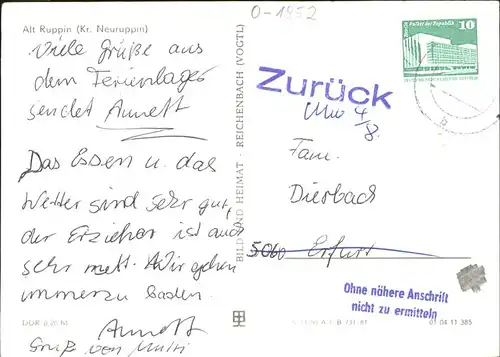 Alt Ruppin (Kr. Neuruppin)
Viele Grüße aus
dem Ferienlager
sendet Annett
Das Essen u. das
Wetter sind sehr gut,
der Erzieher ist auch
sehr nett. Wir gehen
immerzu baden.
Annett
Gruß von Mutti
DDR 0,20 M
BILD UND HEIMAT · REICHENBACH (VOGTL)
0-1852
Palast der Republik
10
Zurück
4/8.
Fam.
Diesbach
5060 Erfurt
Ohne nähere Anschrift
nicht zu ermitteln
01 04 11 385